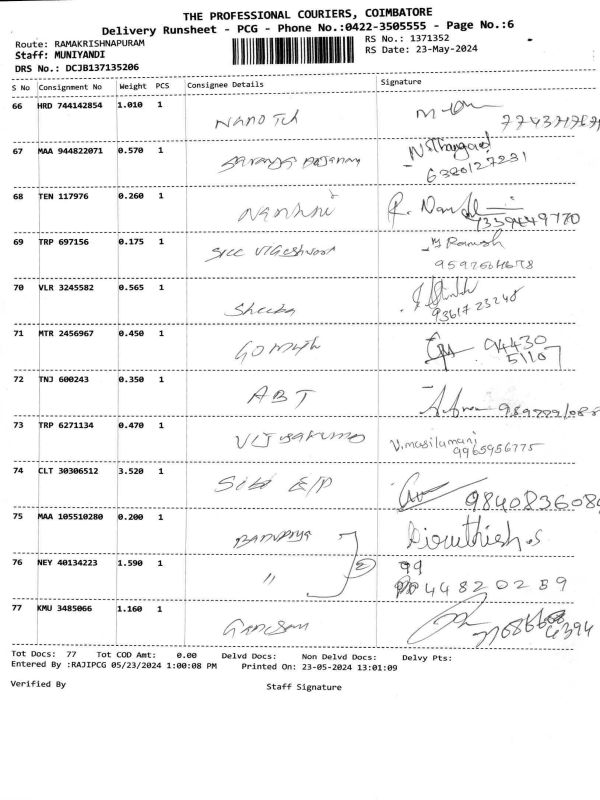 THE PROFESSIONAL COURIERS, COIMBATORE
Delivery Runsheet - PCG - Phone No.:0422-3505555 - Page No.:6
Route: RAMAKRISHNAPURAM RS No.: 1371352
Staff: MUNIYANDI RS Date: 23-May-2024
DRS No.: DCJB137135206
S No Consignment No Weight PCS Consignee Details Signature
66 HRD 744142854 1.010 1 Nano Tch
67 MAA 944822071 0.570 1 N.S.Thangavel
6380127231
68 TEN 117976 0.260 1 Nanhni
69 TRP 697156 0.175 1 Sree Vigeshwar Ramesh
9597564678
70 VLR 3245582 0.565 1 Sheeba
9361723248
71 MTR 2456967 0.450 1 Gomath 94430
51107
72 TNJ 600243 0.350 1 ABT
73 TRP 6271134 0.470 1 Vijayakumar V.masilamani
9965956775
74 CLT 30306512 3.520 1 Sibi E/P 984083608
75 MAA 105510280 0.200 1 Banupriya
76 NEY 40134223 1.590 1 " 2 99
44820259
77 KMU 3485066 1.160 1 Ganesan
Tot Docs: 77 Tot COD Amt: 0.00 Delvd Docs: Non Delvd Docs: Delvy Pts:
Entered By :RAJIPCG 05/23/2024 1:00:08 PM Printed On: 23-05-2024 13:01:09
Verified By Staff Signature